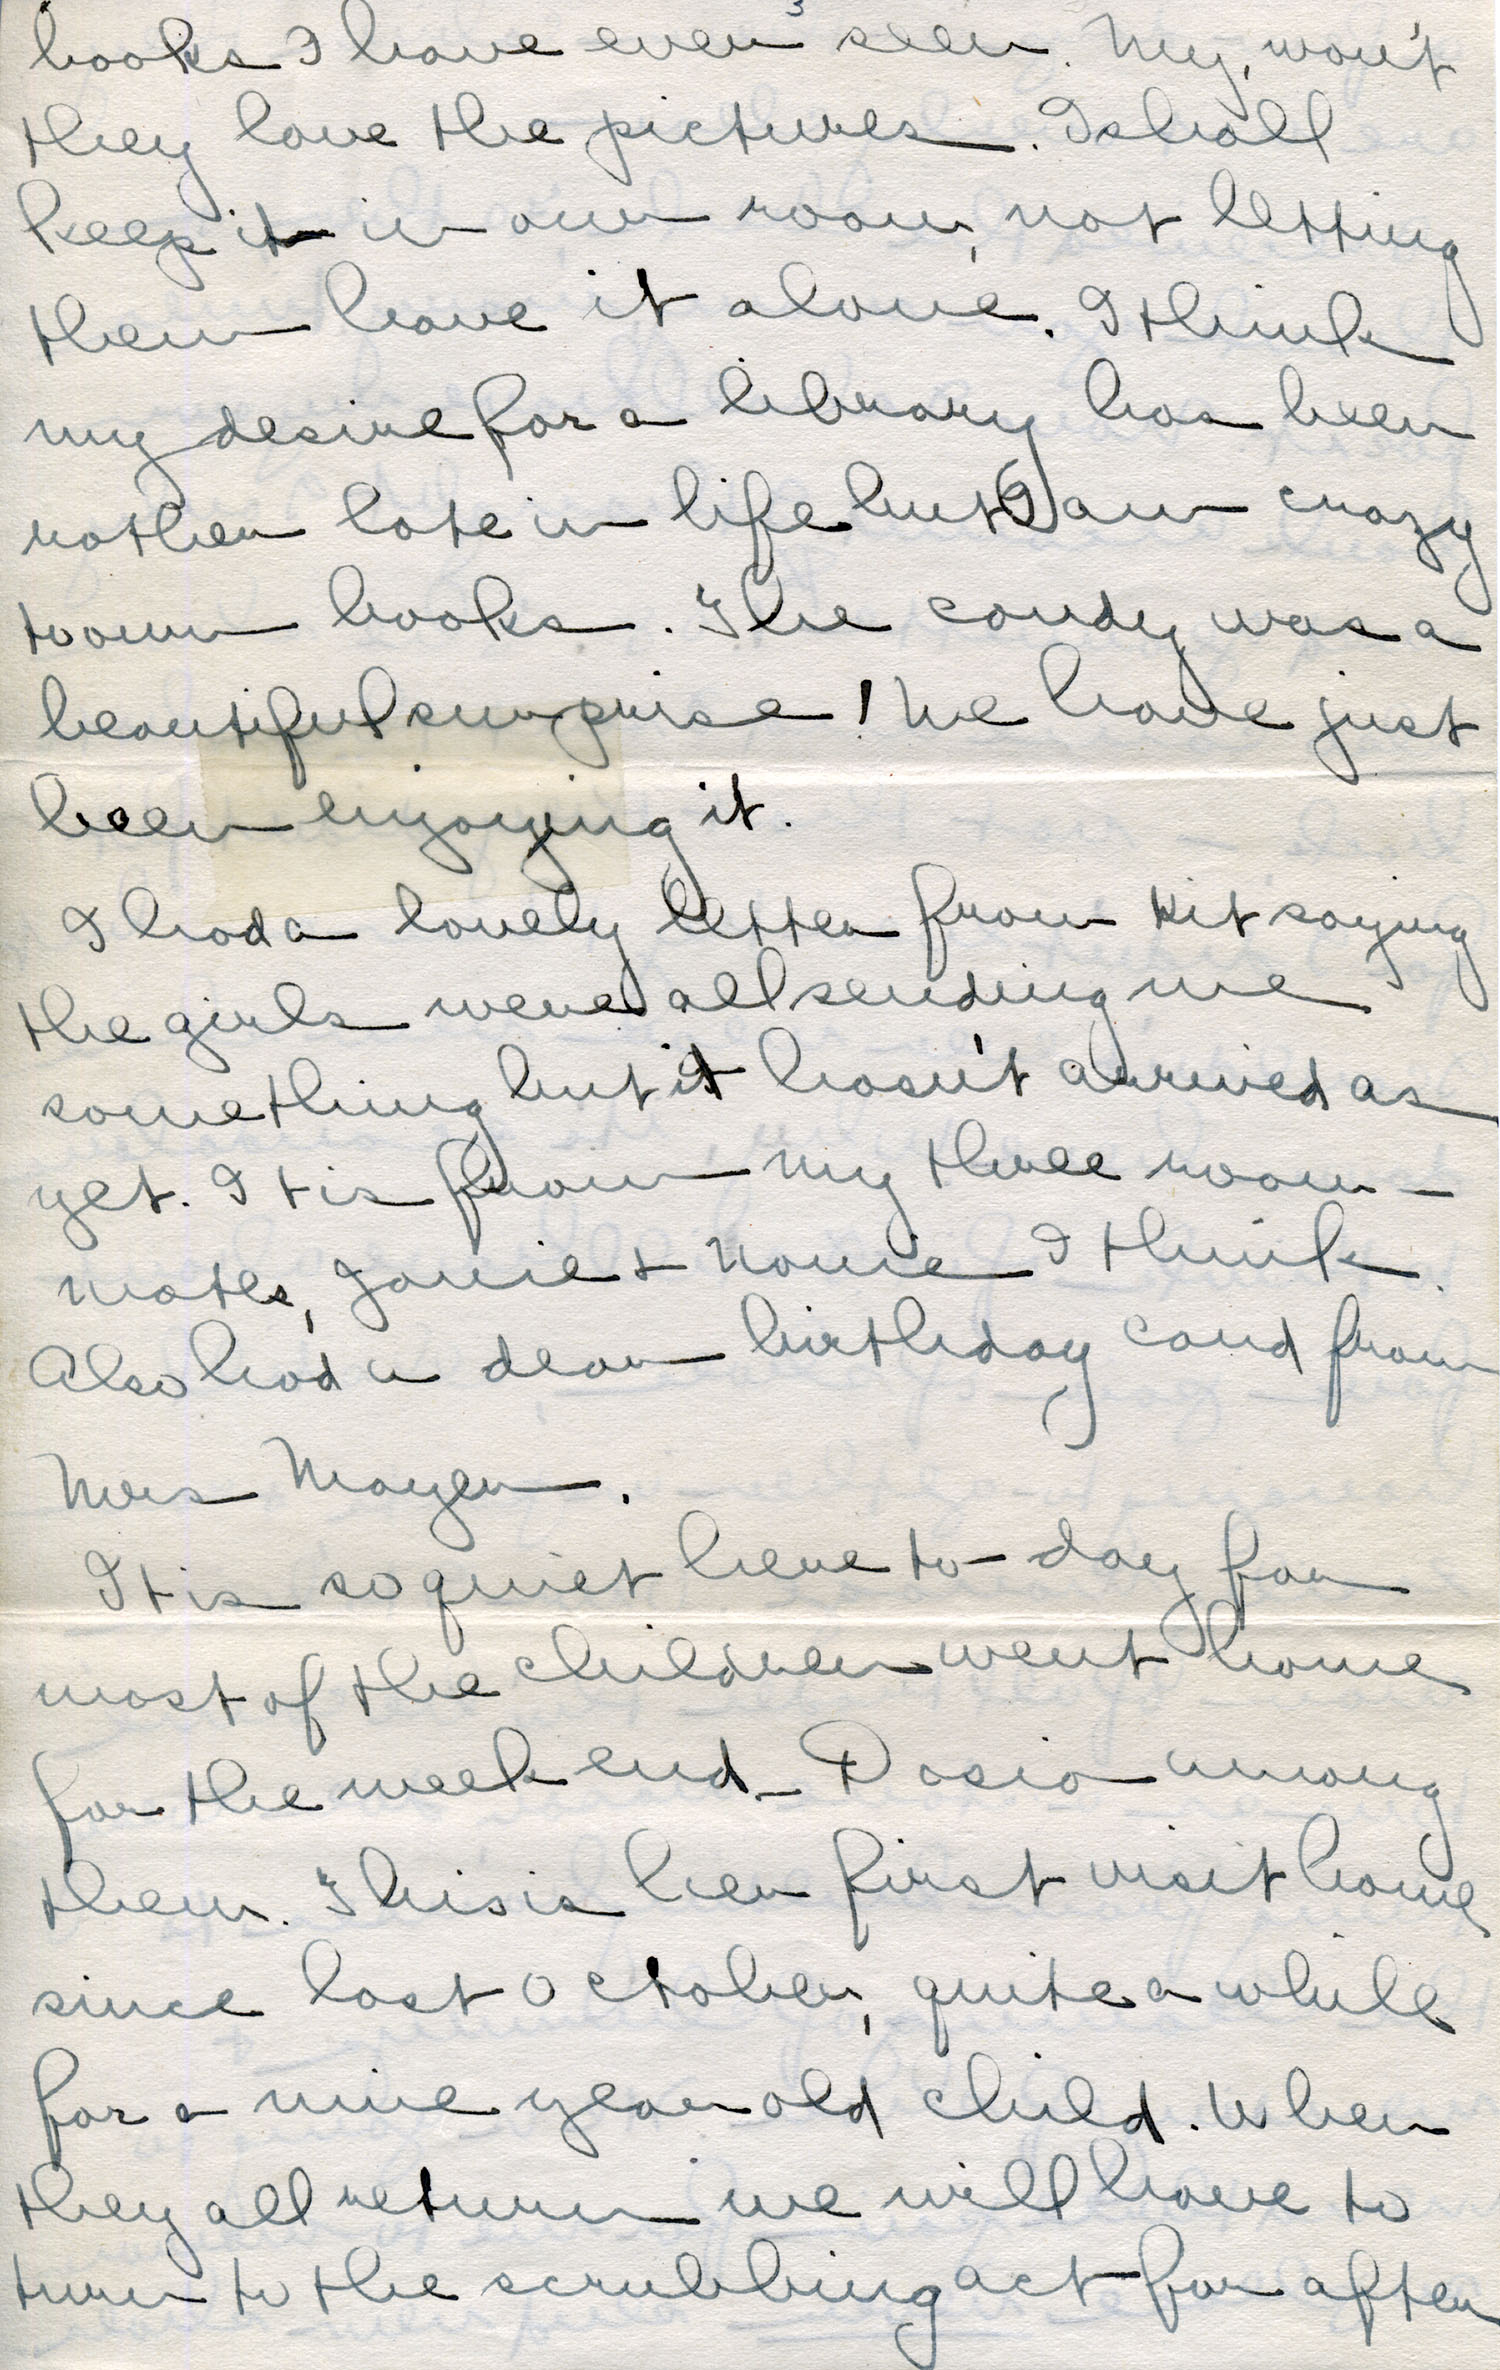 3
books I have ever seen. My, won't
they love the pictures. I shall
keep it in our room, not letting
them have it alone. I think
my desire for a library has been
rather late in life but I am crazy
to own books. The candy was a
beautiful surprise! We have just
been enjoying it.
I had a lovely letter from Kit saying
the girls were all sending me
something but it hasn't arrived as
yet. It is from my three room-
mates, Janie + Nonie I think.
Also had a dear birthday card from
Mrs Mayer.
It is so quiet here to-day for
most of the children went home
for the week end - Dasia among
them. This is her first visit home
since last October, quite a while
for a nine year old child. When
they all return we will have to
turn to the scrubbing act for after